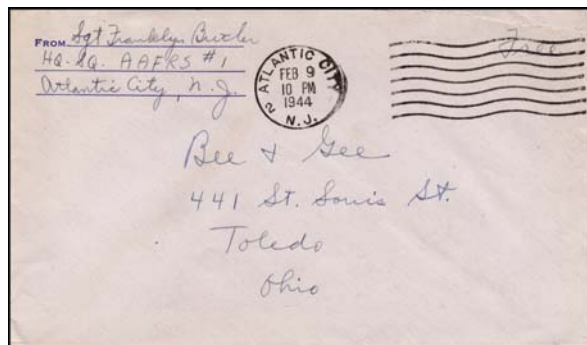 FROM Sgt Franklyn Butler
HQ. SQ. AAFRS #1
Atlantic City, N.J.
ATLANTIC CITY
FEB 9
10 PM
1944
2 N.J.
Free
Bee & Gee
441 St. Louis St.
Toledo
Ohio